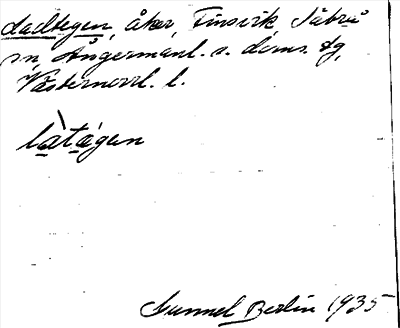 Ladtegen, åker, Finsvik, Säbrå
sn, Ångermanl. s. doms. dg,
Västernorrl. l.
làtágen
Gunnel Berlin 1935